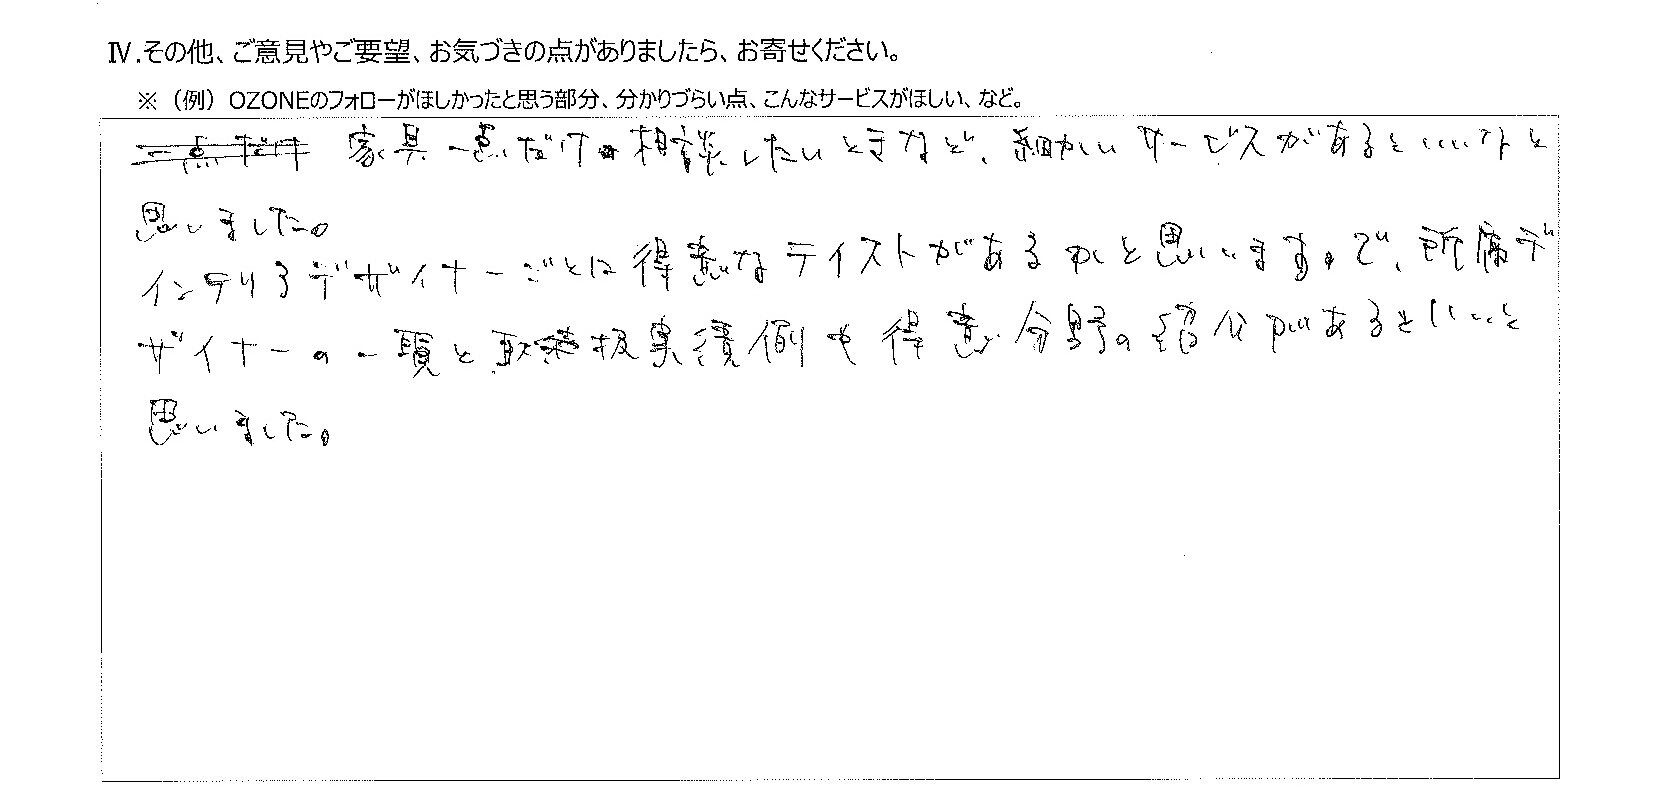 Ⅳ.その他、ご意見やご要望、お気づきの点がありましたら、お寄せください。
※（例）OZONEのフォローがほしかったと思う部分、分かりづらい点、こんなサービスがほしい、など。
家具一点だけ相談したいときなど、細かいサービスがあるといいなと
思いました。
インテリアデザイナーごとに得意なテイストがあるかと思いますので、所属デ
ザイナーの一覧と取扱実績例や得意分野の紹介があるといいと
思いました。